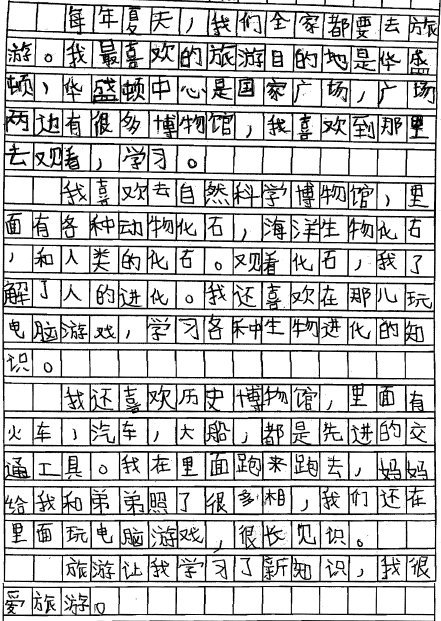 每年夏天，我们全家都要去旅
游。我最喜欢的旅游目的地是华盛
顿，华盛顿中心是国家广场，广场
两边有很多博物馆，我喜欢到那里
去观看，学习。
我喜欢去自然科学博物馆，里
面有各种动物化石，海洋生物化石
，和人类的化石。观看化石，我了
解了人的进化。我还喜欢在那儿玩
电脑游戏，学习各种生物进化的知
识。
我还喜欢历史博物馆，里面有
火车，汽车，大船，都是先进的交
通工具。我在里面跑来跑去，妈妈
给我和弟弟照了很多相，我们还在
里面玩电脑游戏，很长见识。
旅游让我学习了新知识，我很
爱旅游。